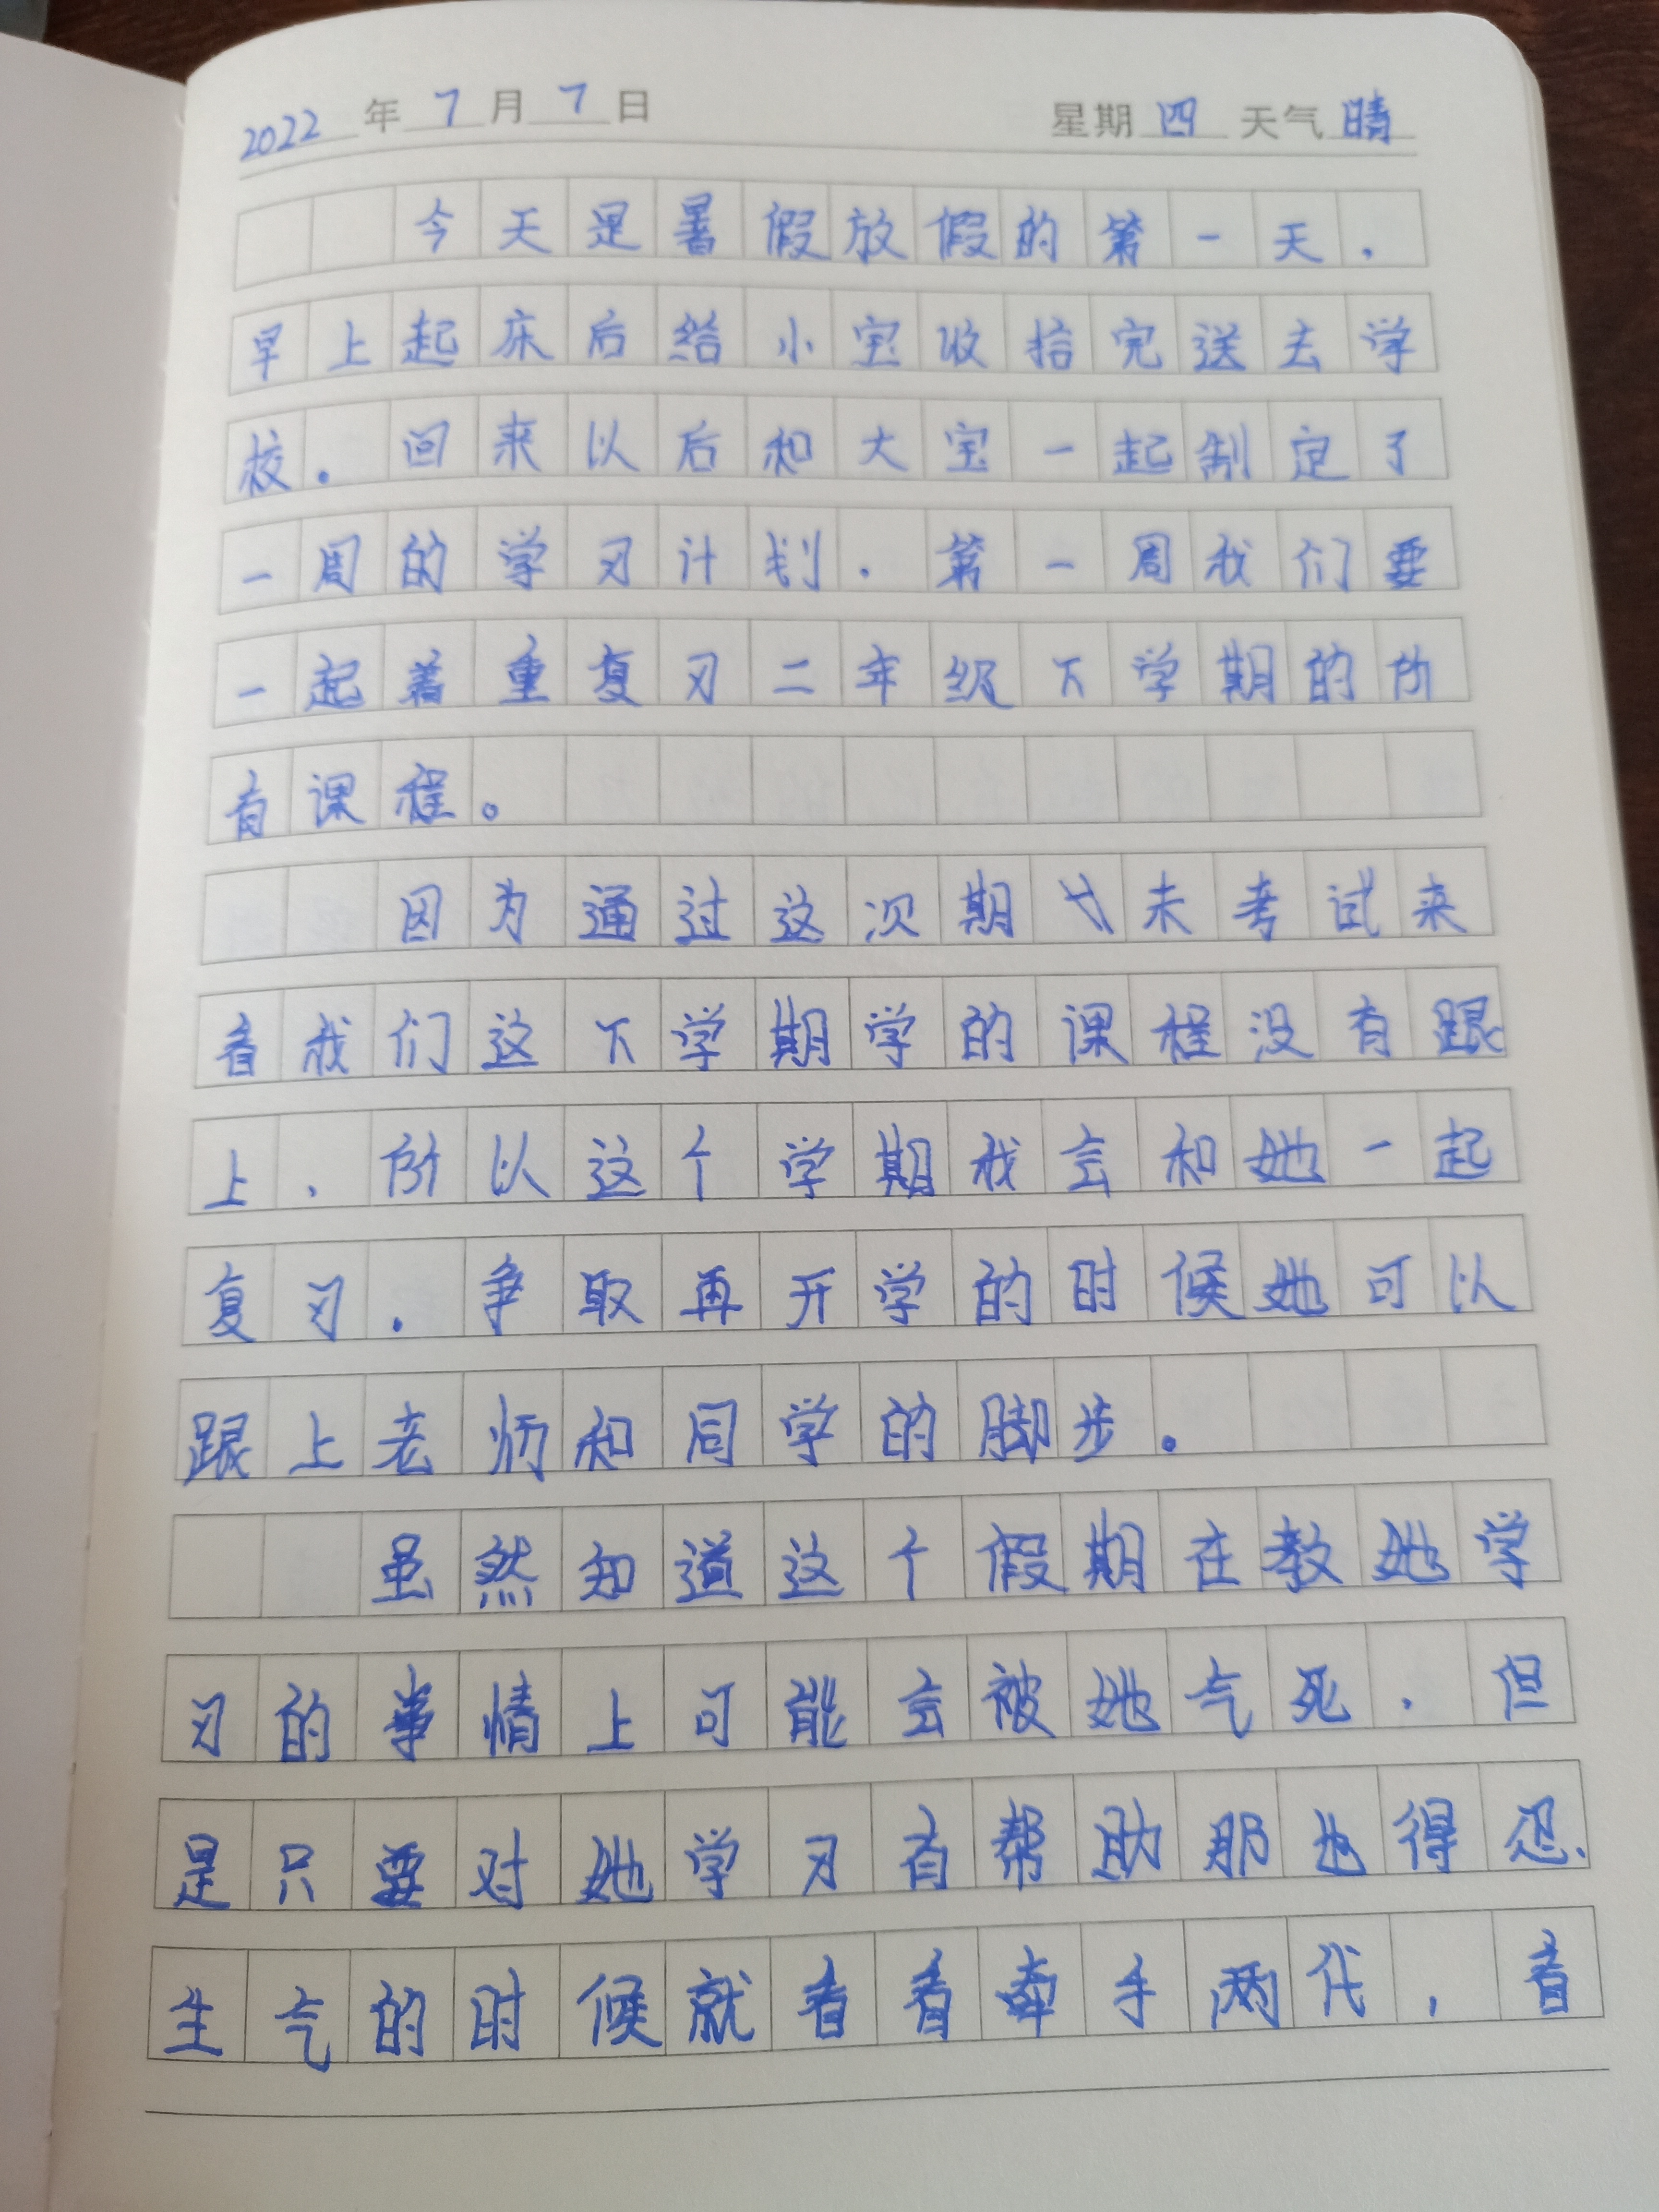 2022 年 7 月 7 日 星期 四 天气 晴
今天是暑假放假的第一天,
早上起床后给小宝收拾完送去学
校。回来以后和大宝一起制定了
一周的学习计划.第一周我们要
一起着重复习二年级下学期的所
有课程。
因为通过这次期末考试来
看我们这下学期学的课程没有跟
上、所以这个学期我会和她一起
复习.争取再开学的时候她可以
跟上老师和同学的脚步。
虽然知道这个假期在教她学
习的事情上可能会被她气死.但
是只要对她学习有帮助那也得忍、
生气的时候就看看牵手两代,看